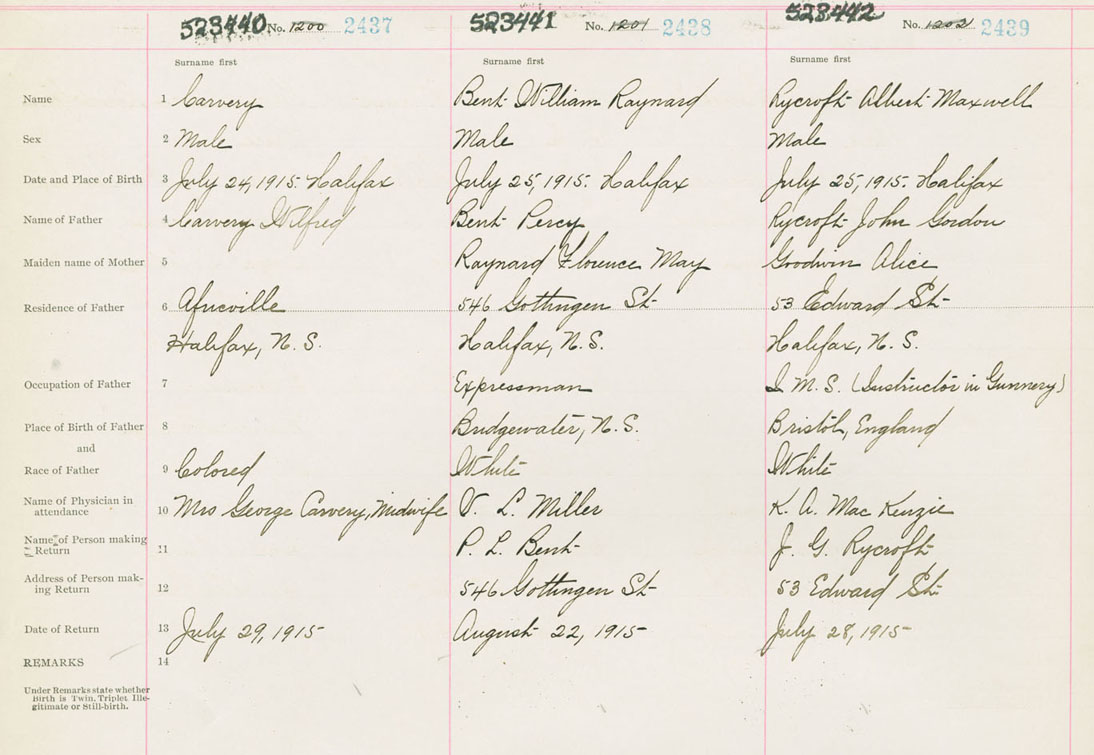 523440 No. 1200 2437 523441 No. 1201 2438 523442 No. 1202 2439
Surname first Surname first Surname first
Name 1 Carvery Bent William Raynard Rycroft Albert Maxwell
Sex 2 Male Male Male
Date and Place of Birth 3 July 24, 1915. Halifax July 25, 1915. Halifax July 25, 1915. Halifax
Name of Father 4 Carvery Wilfred Bent Percy Rycroft John Gordon
Maiden name of Mother 5 Raynard Florence May Goodwin Alice
Residence of Father 6 Africville 546 Gottingen St 53 Edward St
Halifax, N.S. Halifax, N.S. Halifax, N.S.
Occupation of Father 7 Expressman I.M.S. (Instructor in Gunnery)
Place of Birth of Father 8 Bridgewater, N.S. Bristol, England
and
Race of Father 9 Colored White White
Name of Physician in
attendance 10 Mrs George Carvery, Midwife V. L. Miller K. A. MacKenzie
Name of Person making
Return 11 P. L. Bent J. G. Rycroft
Address of Person mak-
ing Return 12 546 Gottingen St 53 Edward St
Date of Return 13 July 29, 1915 August 22, 1915 July 28, 1915
REMARKS 14
Under Remarks state whether
Birth is Twin, Triplet, Ille-
gitimate or Still-birth.